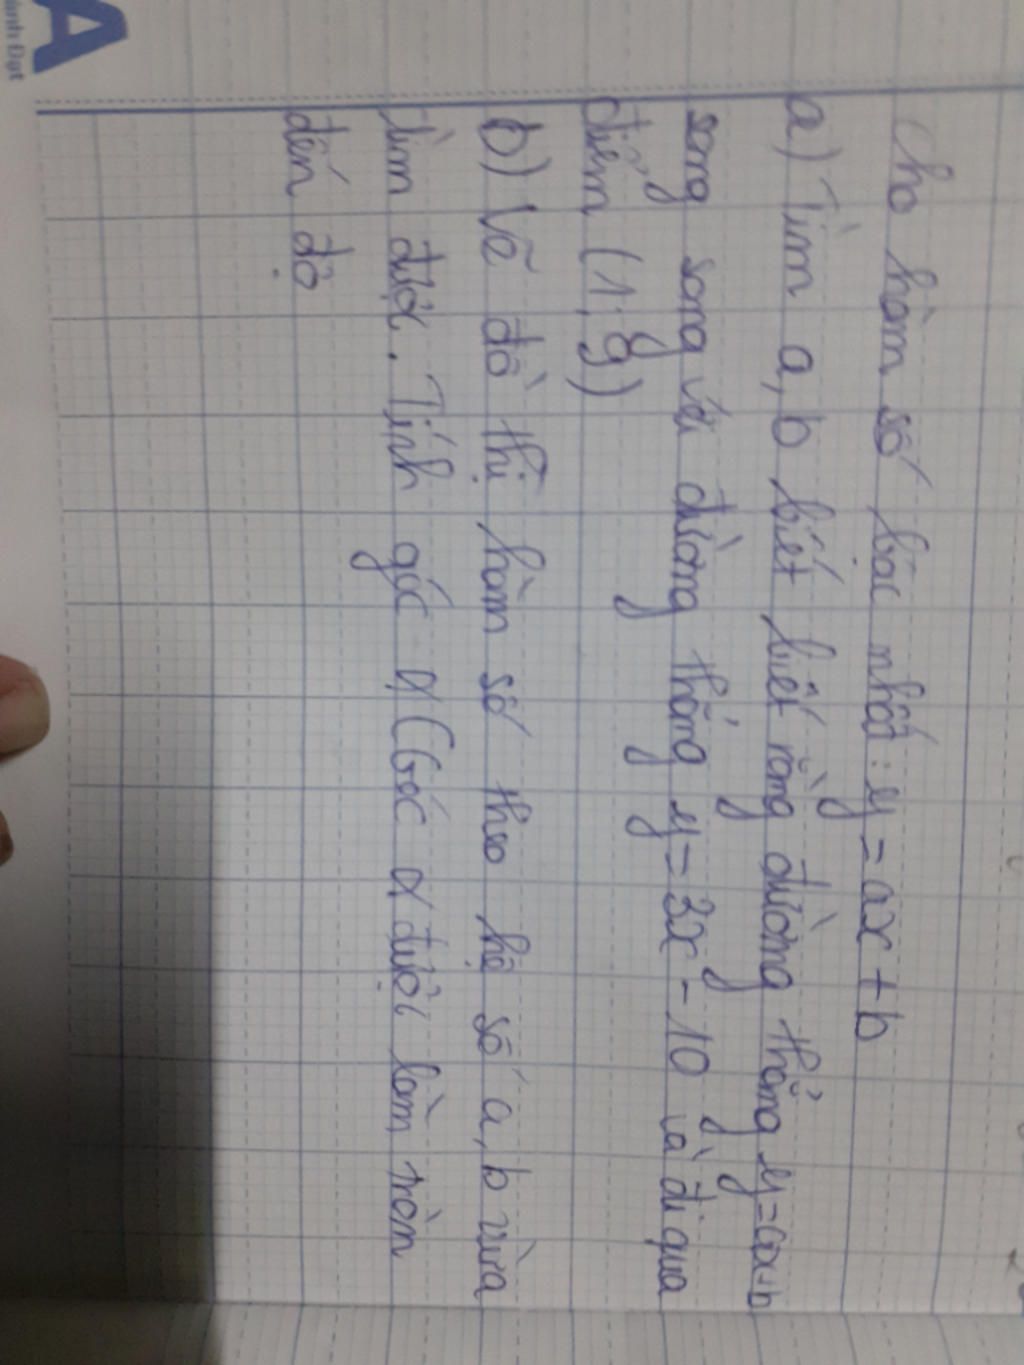 Cho hàm số bậc nhất: y = ax + b
a) Tìm a, b biết biết rằng đường thẳng y = ax + b
song song với đường thẳng y = 3x - 10 và đi qua
điểm (1; 9)
b) Vẽ đồ thị hàm số theo hệ số a, b vừa
tìm được. Tính góc α (Góc α được làm tròn
đến độ
A
ành Đạt